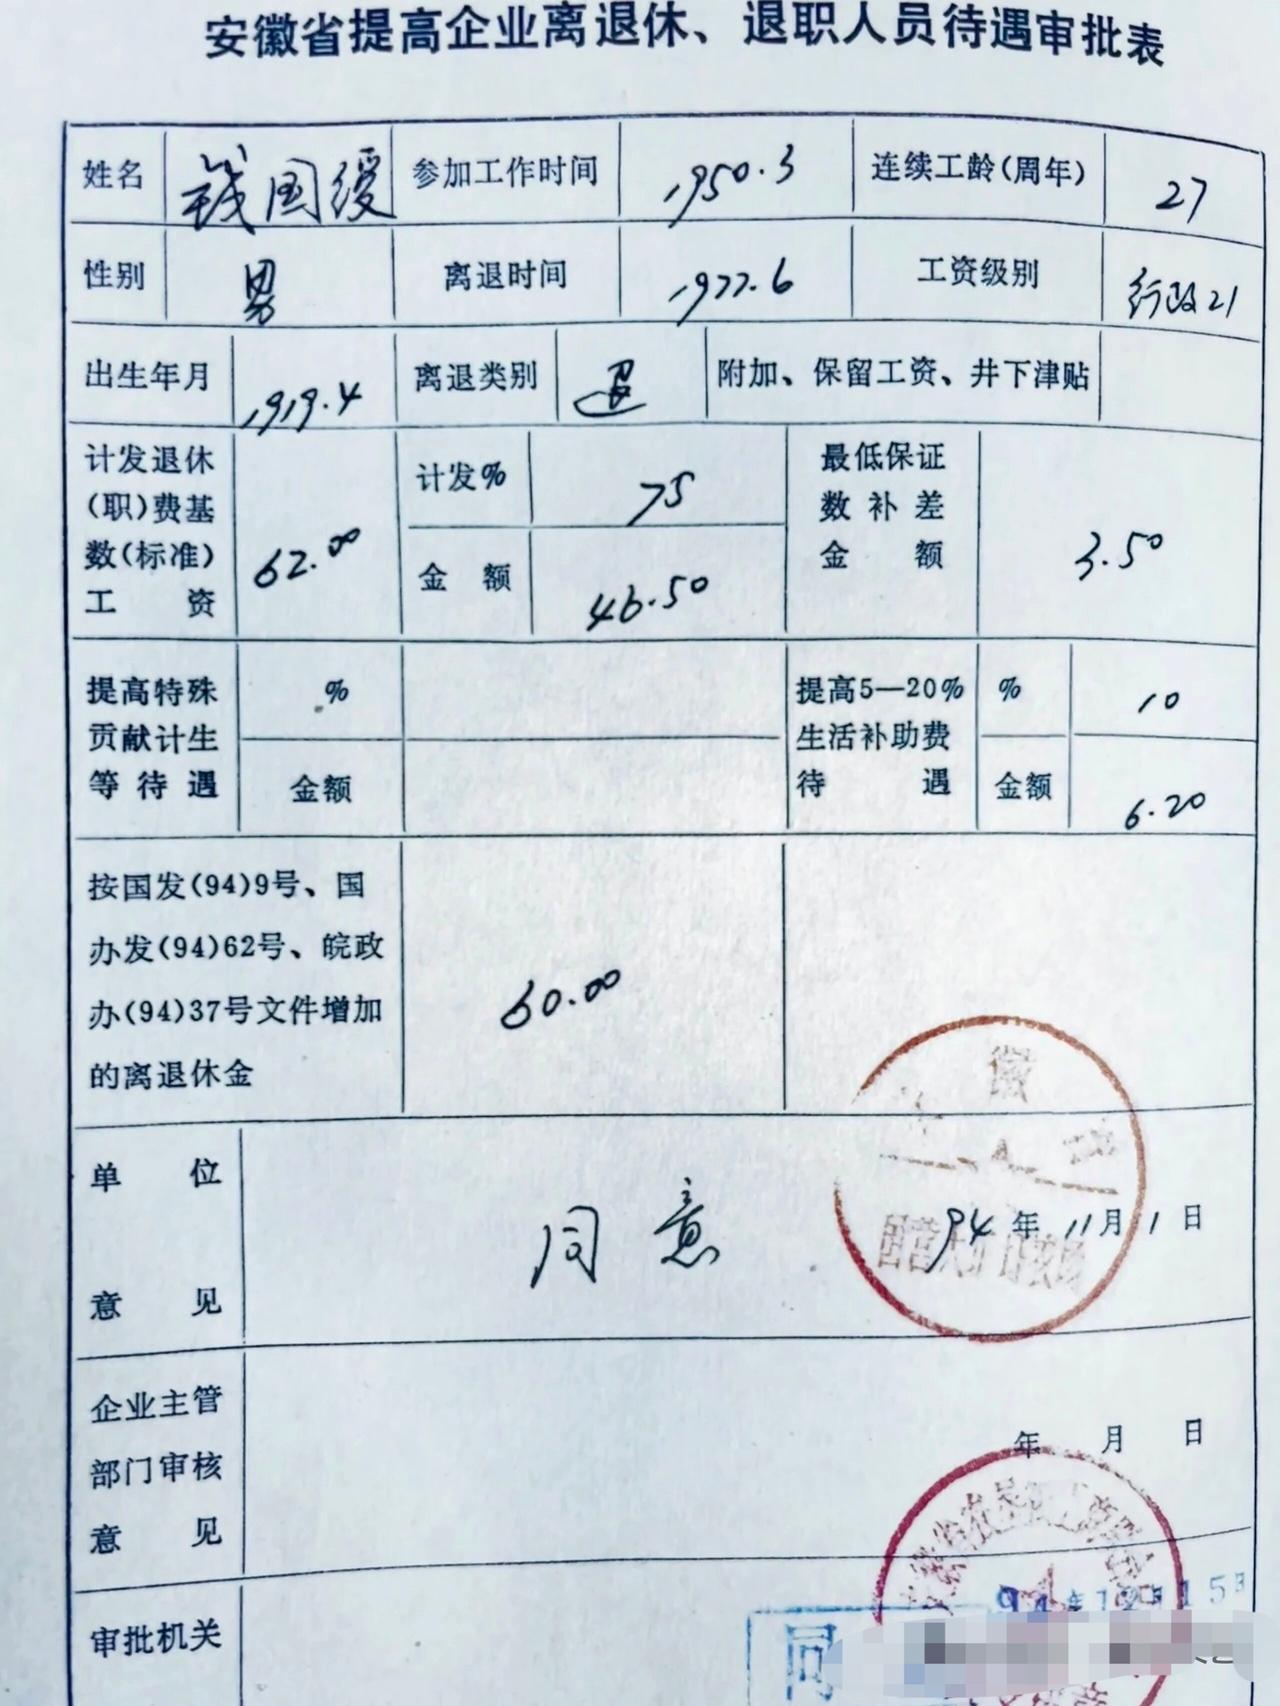 安徽省提高企业离退休、退职人员待遇审批表
姓名 钱国绶 参加工作时间 1950.3 连续工龄(周年) 27
性别 男 离退时间 1977.6 工资级别 行政21
出生年月 1919.4 离退类别 退 附加、保留工资、井下津贴
计发退休
(职)费基
数(标准)
工资
62.00
计发% 75
金额 46.50
最低保证
数补差
金额
3.50
提高特殊
贡献计生
等待遇
%
金额
提高5—20%
生活补助费
待遇
% 10
金额 6.20
按国发(94)9号、国
办发(94)62号、皖政
办(94)37号文件增加
的离退休金
60.00
单位
意见
同意
94年11月1日
企业主管
部门审核
意见
年 月 日
审批机关
94年12月15日
同